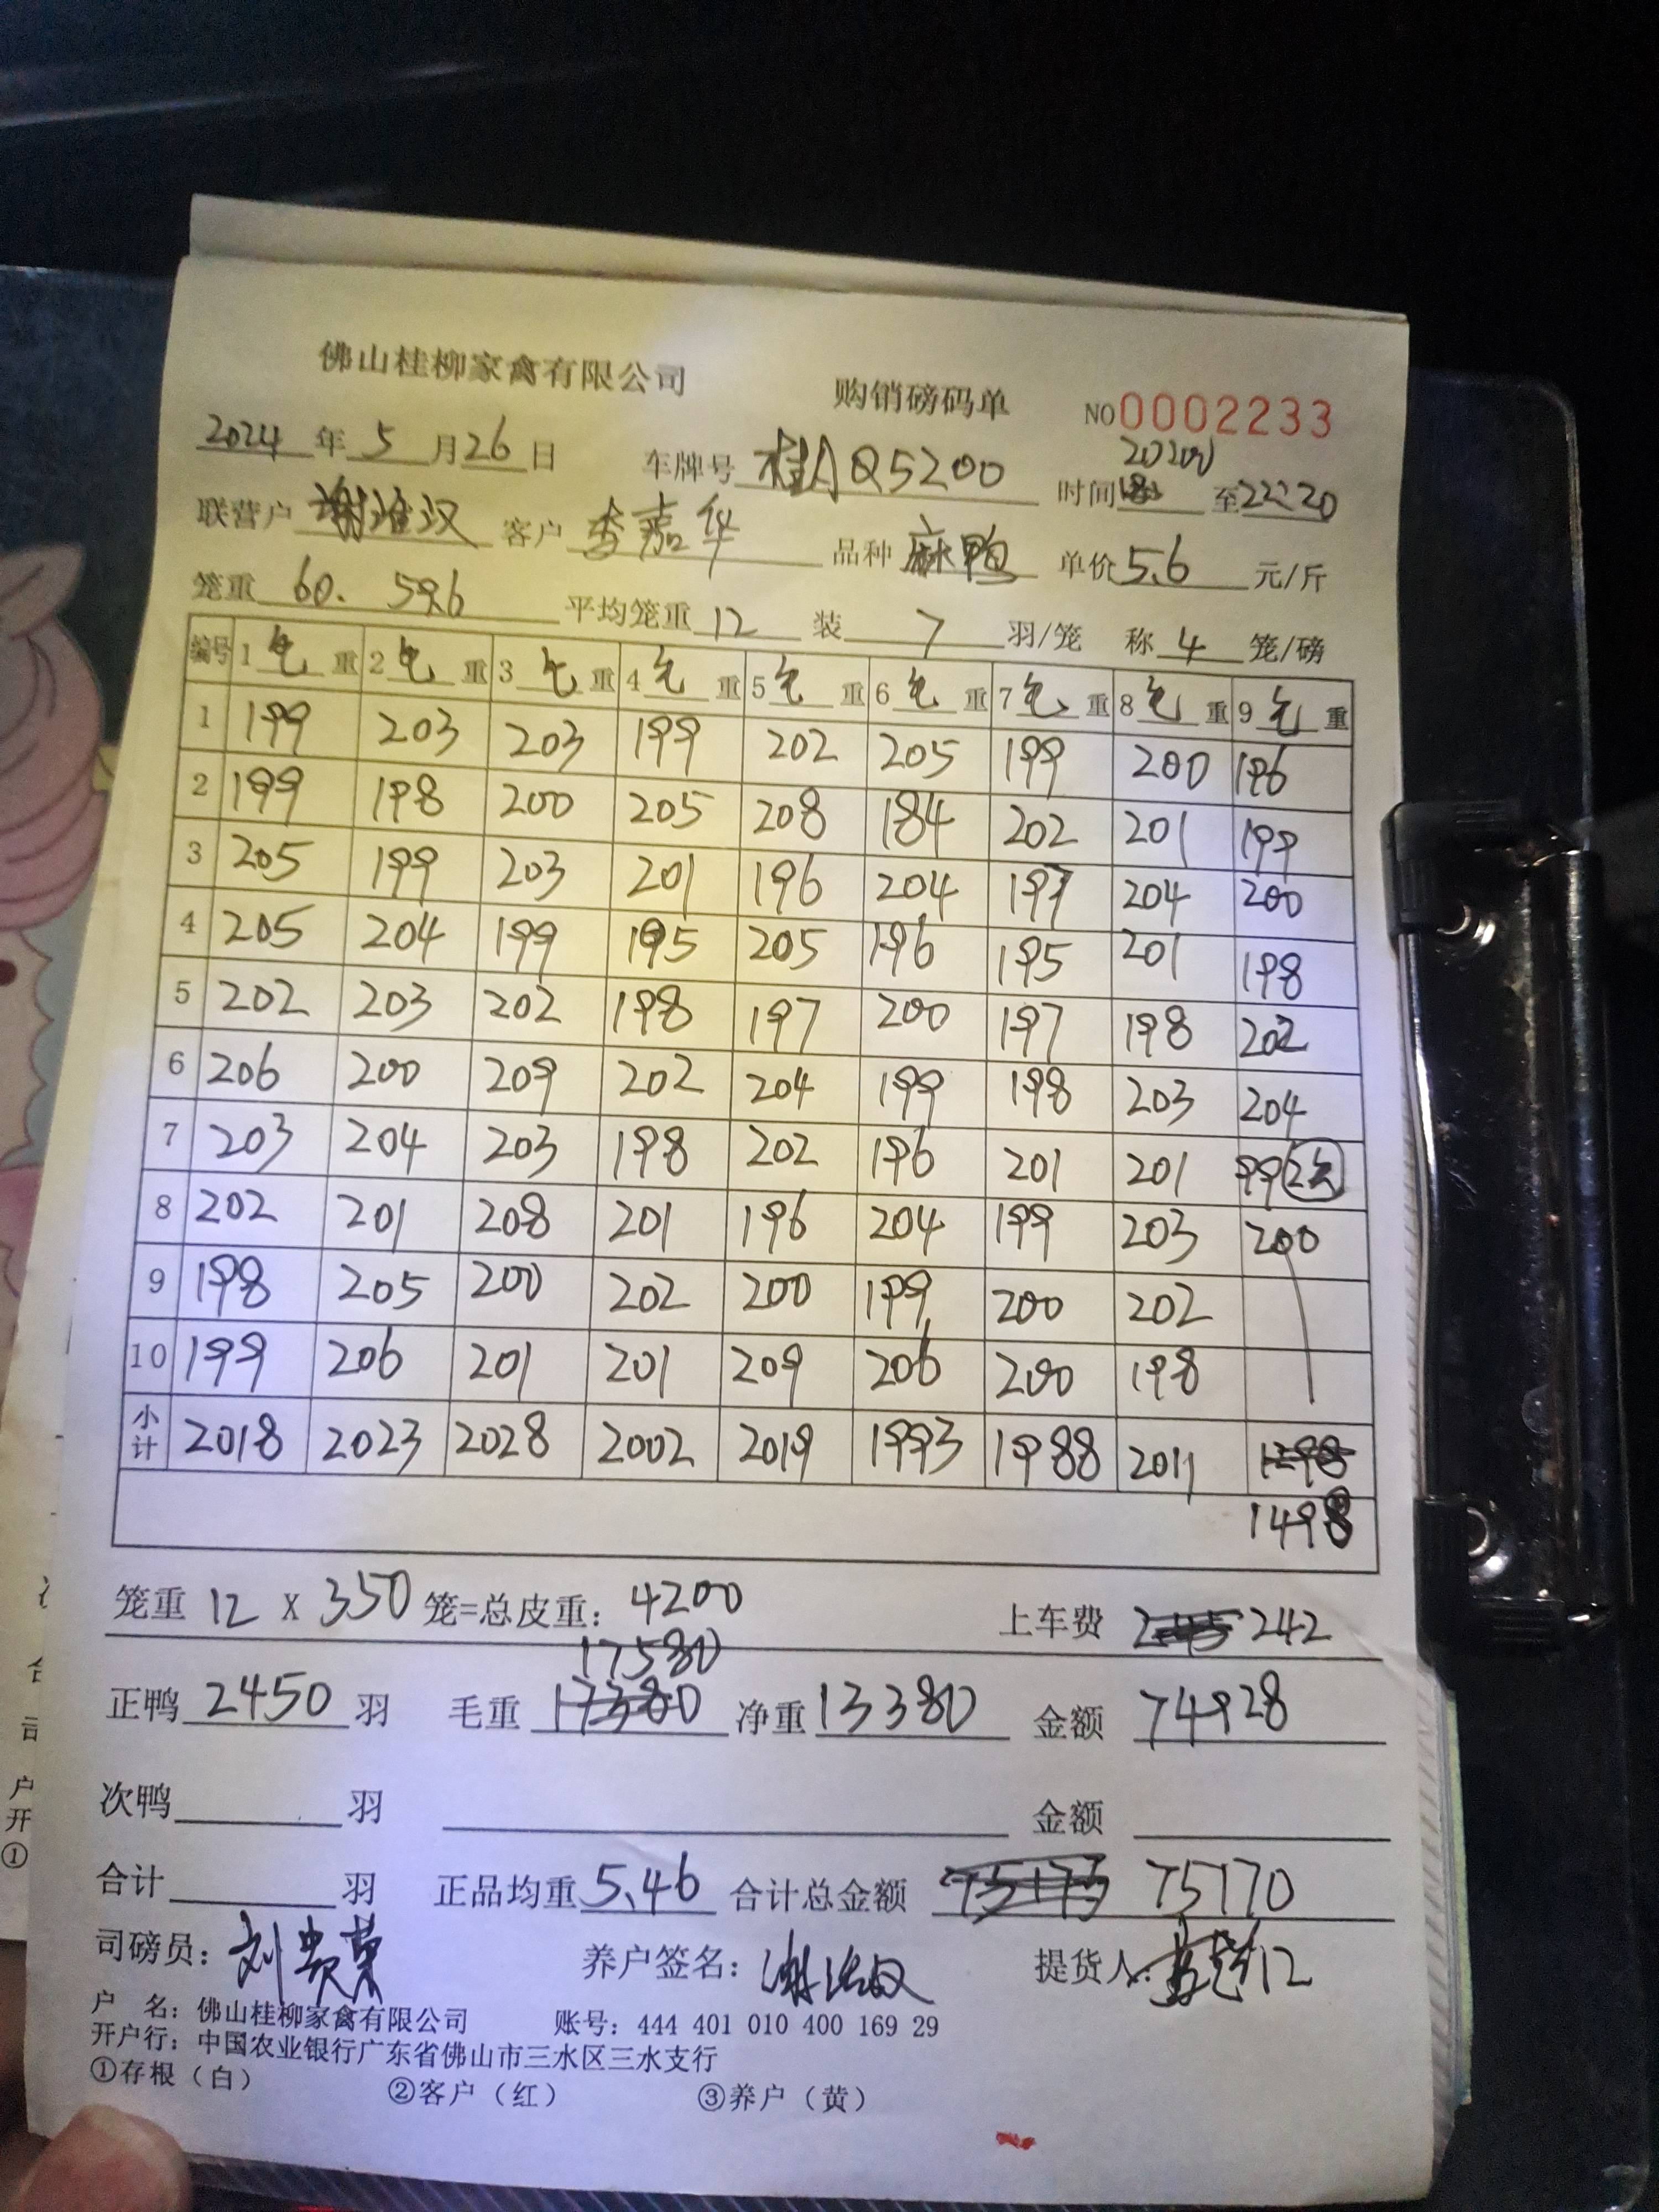 佛山桂柳家禽有限公司 购销磅码单 NO 0002233
2024年5月26日 车牌号 桂AQ5200 时间 至22:20
联营户 客户 李嘉华 品种 麻鸭 单价5.6元/斤
笼重 60. 59.6 平均笼重 12 装 7 羽/笼 称 4 笼/磅
编号 1毛重 2毛重 3毛重 4毛重 5毛重 6毛重 7毛重 8毛重 9毛重
1 199 203 203 199 202 205 199 200 196
2 199 198 200 205 208 184 202 201 199
3 205 199 203 201 196 204 197 204 200
4 205 204 199 195 205 196 195 201 198
5 202 203 202 198 197 200 197 198 202
6 206 200 209 202 204 199 198 203 204
7 203 204 203 198 202 196 201 201 99
8 202 201 208 201 196 204 199 203 200
9 198 205 200 202 200 199 200 202
10 199 206 201 201 209 206 200 198
小计 2018 2023 2028 2002 2019 1993 1988 2011
1498
笼重 12 X 350 笼=总皮重: 4200 上车费 242
17580
正鸭 2450 羽 毛重 17380 净重 13380 金额 74928
次鸭 羽 金额
合计 羽 正品均重 5.46 合计总金额 75173 75170
司磅员: 刘贵荣 养户签名: 提货人:
户 名: 佛山桂柳家禽有限公司 账号: 444 401 010 400 169 29
开户行: 中国农业银行广东省佛山市三水区三水支行
①存根（白） ②客户（红） ③养户（黄）